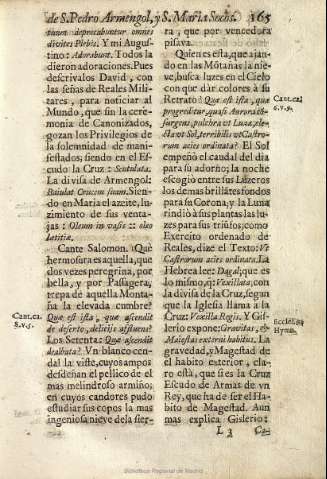 de S. Pedro Armengol, y S. Maria Socòs. 165
tuum deprecabuntur omnes
divites Plebis. Y mi Augus-
tino: Adorabunt. Todos la
dieron adoraciones. Pues
descrivalos David, con
las señas de Reales Mili-
tares, para noticiar al
Mundo, que sin la cere-
monia de Canonizados,
gozan los Privilegios de
la solemnidad de mani-
festados, siendo en el Es-
cudo la Cruz: Scutulata.
La divisa de Armengol:
Baiulat Crucem suam. Sien-
do en Maria el azeite, lu-
zimiento de sus venta-
jas: Oleum in vasis :: oleo
lætitiæ.
Cante Salomon. Què
hermosura es aquella, que
dos vezes peregrina, por
bella, y por Passagera,
trepa dè aquella Monta-
ña la elevada cumbre?
Cant. ca.
8. v. 5.
Quæ est ista, quæ ascendit
de deserto, delicijs affluens?
Los Setenta: Quæ ascendit
dealbata? Vn blanco cen-
dal la viste, cuyos ampos
desdeñan el pellico de el
mas melindroso armiño,
en cuyos candores pudo
estudiar sus copos la mas
ingeniosa nieve de la sier-
ra, que por vencedora
pisava.
Quien es esta, que ajan-
do en las Mõtañas la nie-
ve, busca luzes en el Cielo
con que dar colores à su
Retrato? Quæ est ista, quæ
Cant. ca.
6. v. 9.
progreditur, quasi Aurora con-
surgens, pulchra vt Luna, ele-
cta vt Sol, terribilis vt Castro-
rum acies ordinata? El Sol
empeñò el caudal del dia
para su adorno; la noche
escogiò entre sus Luzeros
los de mas brillãtes fondos
para su Corona, y la Luna
rindiò à sus plantas las lu-
zes para sus triũfos; como
Exercito ordenado de
Reales, dize el Texto: Vt
Castrorum acies ordinata. La
Hebrea lee: Dagal; que es
lo mismo, q̃: Vexillata, con
la divisa de la Cruz, segun
que la Iglesia llama à la
Cruz: Vexilla Regis. Y Gis-
Ecclesia
Hymn.
lerio expone: Gravitas, &
Maiestas externi habitus. La
gravedad, y Magestad de
el habito exterior, cla-
ro està, que si es la Cruz
Escudo de Armas de vn
Rey, que ha de ser el Ha-
bito de Magestad. Aun
mas explica Gislerio:
L 3
Biblioteca Regional de Madrid